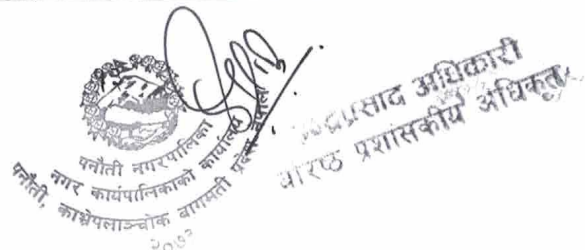 पनौती नगरपालिका
नगर कार्यपालिकाको कार्यालय
पनौती, काभ्रेपलाञ्चोक बागमती प्रदेश नेपाल
२०७३
प्रसाद अधिकारी
वरिष्ठ प्रशासकीय अधिकृत